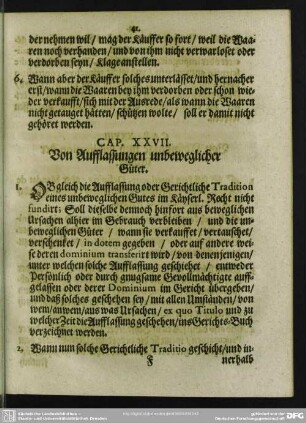 41.
der nehmen wil / mag der Käuffer so fort / weil die Waa-
ren noch verhanden / und von ihm nicht verwarloset oder
verdorben seyn / Klage anstellen.
6. Wann aber der Käuffer solches unterlässet / und hernacher
erst / wann die Waaren bey ihm verdorben oder schon wie-
der verkaufft / sich mit der Ausrede / als wann die Waaren
nicht getauget hätten / schützen wolte / soll er damit nicht
gehöret werden.
CAP. XXVII.
Von Aufflassungen unbeweglicher
Güter.
1. OBgleich die Aufflassung oder Gerichtliche Tradition
eines unbeweglichen Gutes im Käyserl. Recht nicht
fundirt: Soll dieselbe dennoch hinfort aus beweglichen
Ursachen alhier im Gebrauch verbleiben / und die un-
beweglichen Güter / wann sie verkauffet / vertauschet /
verschenket / in dotem gegeben / oder auf andere wei-
se deren dominium transferirt wird / von denenjenigen /
unter welchen solche Aufflassung geschiehet / entweder
Persönlich oder durch gnugsame Gevollmächtigte auff-
gelassen oder derer Dominium im Gericht übergeben /
und daß solches geschehen sey / mit allen Umständen / von
wem / an wem / aus was Ursachen / ex quo Titulo und zu
welcher Zeit die Aufflassung geschehen / ins Gerichts-Buch
verzeichnet werden.
2. Wann nun solche Gerichtliche Traditio geschicht / und in-
F nerhalb